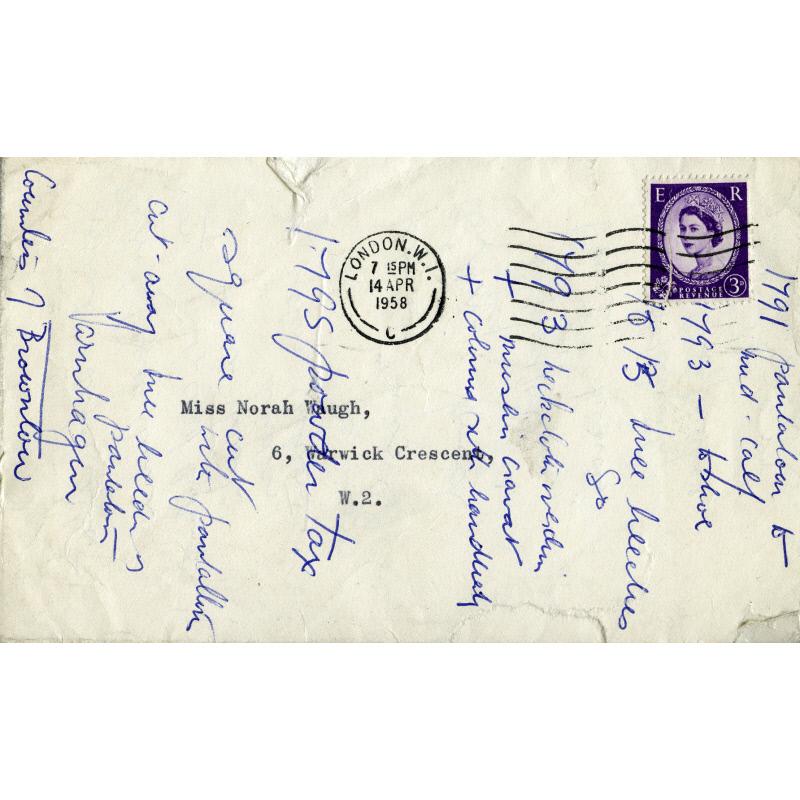 E R
POSTAGE
REVENUE
3D
LONDON. W.1.
7 15PM
14 APR
1958
C
Miss Norah Waugh,
6, Warwick Crescent,
W.2.
1791 pantaloon to
mid-calf
1793 — to shoe
knee breeches
1793 neckcloth
+ muslin cravat
+ coloured silk
1795 powder tax
Square cut
with pantaloon
cut-away knee breeches
pantaloon
Varnhagen
Countess of Brownlow